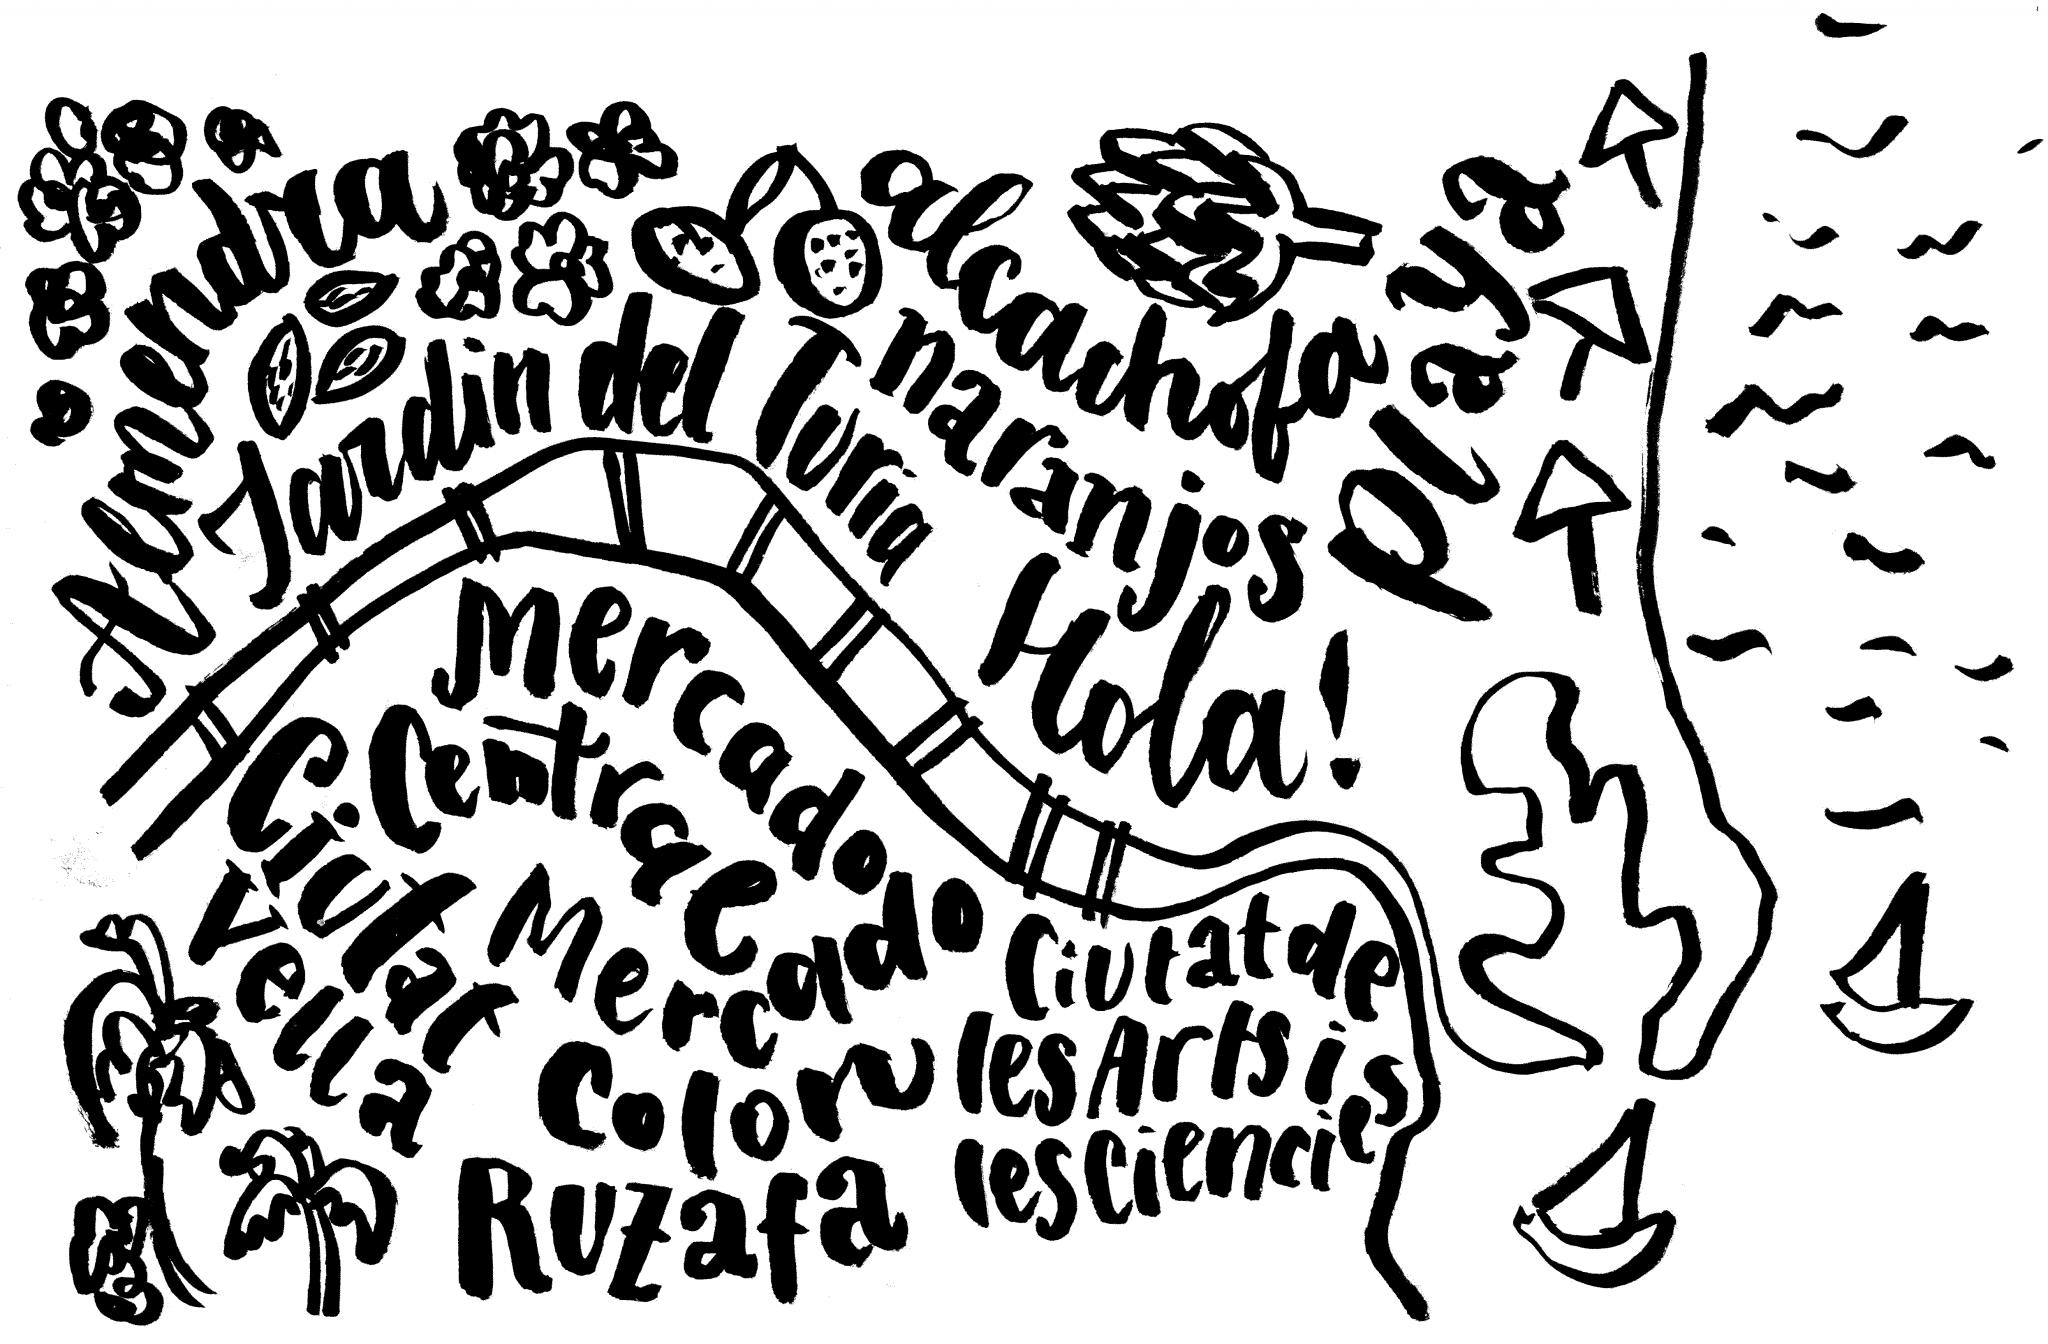 Alemendra
Jardin del Turia
alcachofa
naranjos
playa
Hola!
Mercado
Ciutat
vella
Mercado
Colon
Ruzafa
Ciutat de
les Arts i
les Ciencies